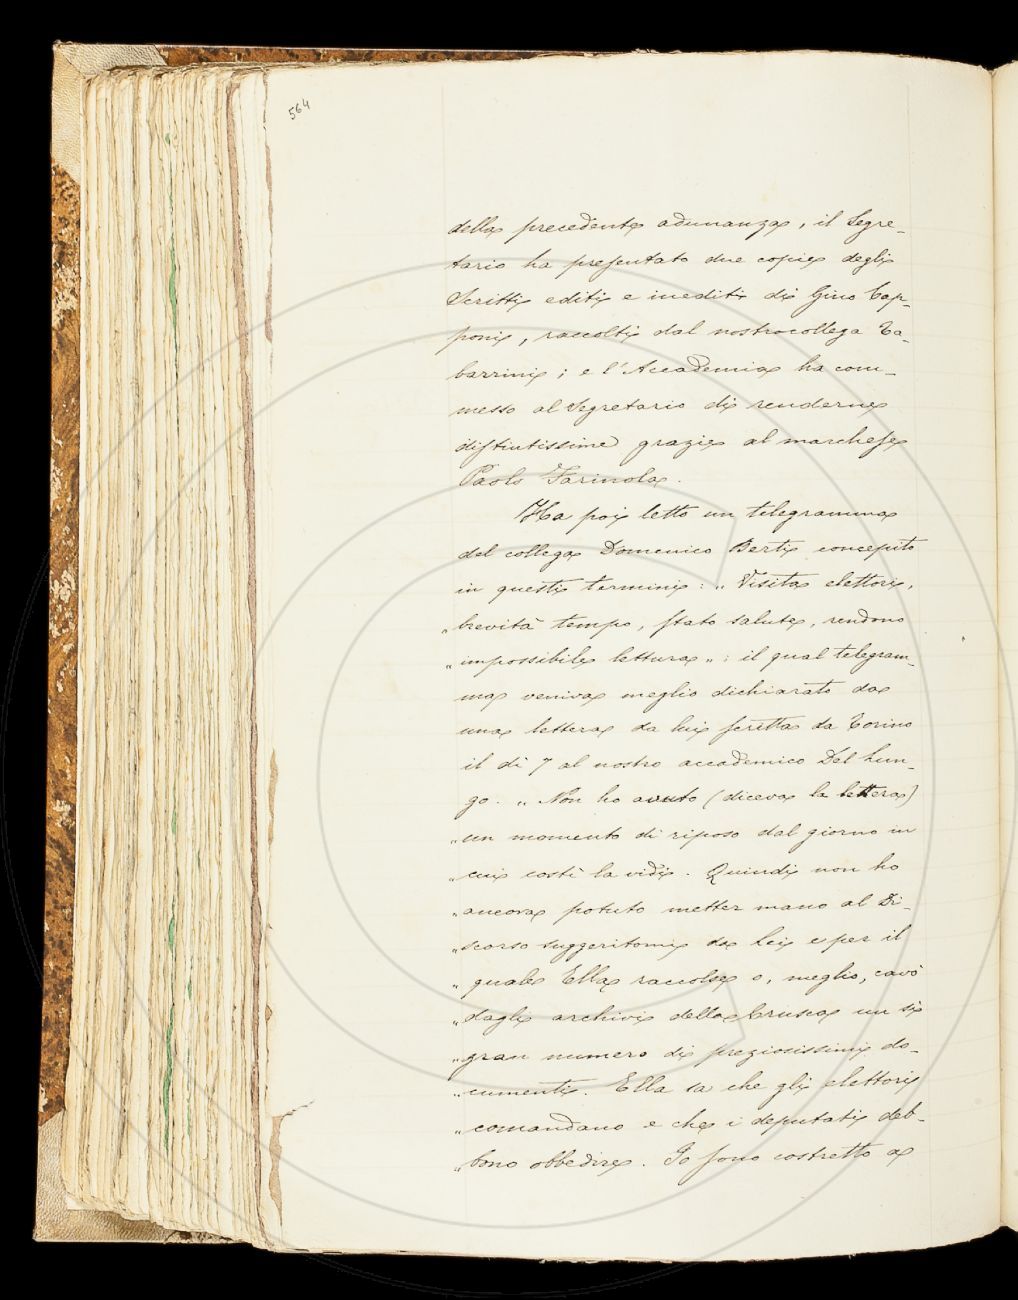 564
della precedente adunanza, il Segre-
tario ha presentato due copie degli
Scritti editi e inediti di Gino Cap-
poni, raccolti dal nostro collega Ta-
barrini; e l'Accademia ha com-
messo al Segretario di renderne
distintissime grazie al marchese
Paolo Farinola.
Ha poi letto un telegramma
del collega Domenico Berti concepito
in questi termini: „ Visita elettori,
„ brevità tempo, stato salute, rendono
„ impossibile lettura „; il qual telegram-
ma veniva meglio dichiarato da
una lettera da lui scritta da Torino
il dì 7 al nostro accademico Del Lun-
go. „ Non ho avuto (diceva la lettera)
„ un momento di riposo dal giorno in
„ cui costì la vidi. Quindi non ho
„ ancora potuto metter mano al Di-
„ scorso suggeritomi da Lei e per il
„ quale Ella raccolse o, meglio, cavò
„ dagli archivi della Crusca un sì
„ gran numero di preziosissimi do-
„ cumenti. Ella sa che gli elettori
„ comandano e che i deputati deb-
„ bono obbedire. Io sono costretto a